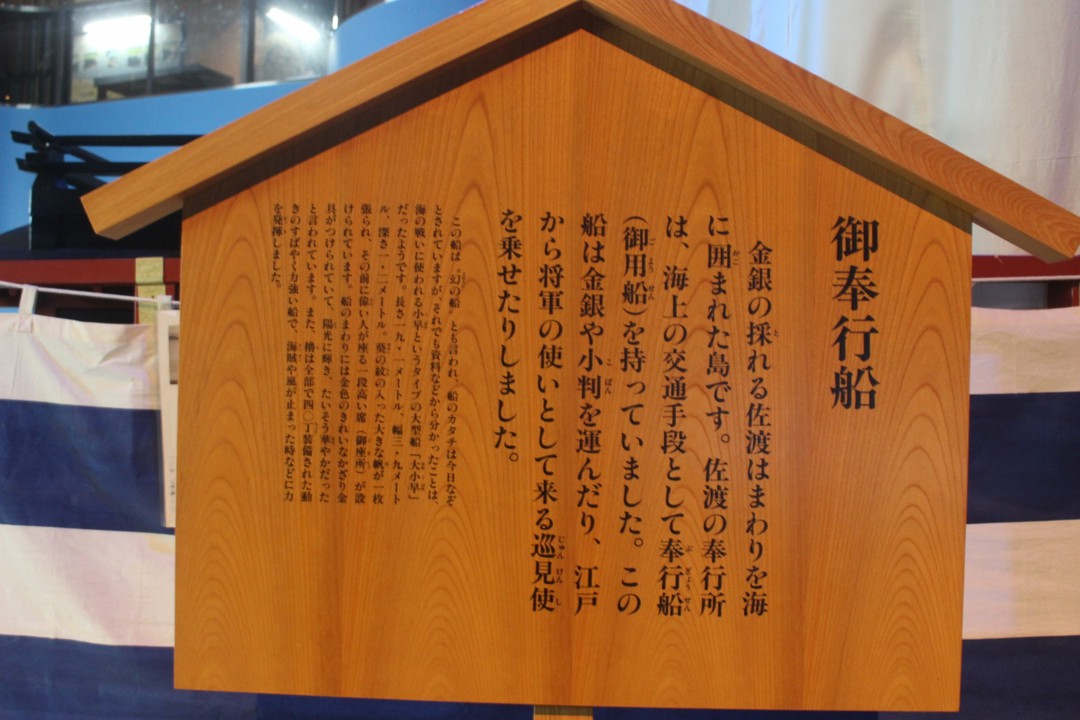 御奉行船
金銀の採れる佐渡はまわりを海
に囲まれた島です。佐渡の奉行所
は、海上の交通手段として奉行船
（御用船）を持っていました。この
船は金銀や小判を運んだり、江戸
から将軍の使いとして来る巡見使
を乗せたりしました。
この船は〝幻の船〟とも言われ、船のカタチは今日なぞ
とされていますが、それでも資料などから分かったことは、
海の戦いに使われる小早というタイプの大型船「大小早」
だったようです。長さ一九・一メートル、幅三・九メート
ル、深さ一・二メートル。葵の紋の入った大きな帆が一枚
張られ、その前に偉い人が座る一段高い席（御座所）が設
けられています。船のまわりには金色のきれいなかざり金
具がつけられていて、陽光に輝き、たいそう華やかだった
と言われています。また、櫓は全部で四〇丁装備された動
きのすばやく力強い船で、海賊や風が止まった時などに力
を発揮しました。